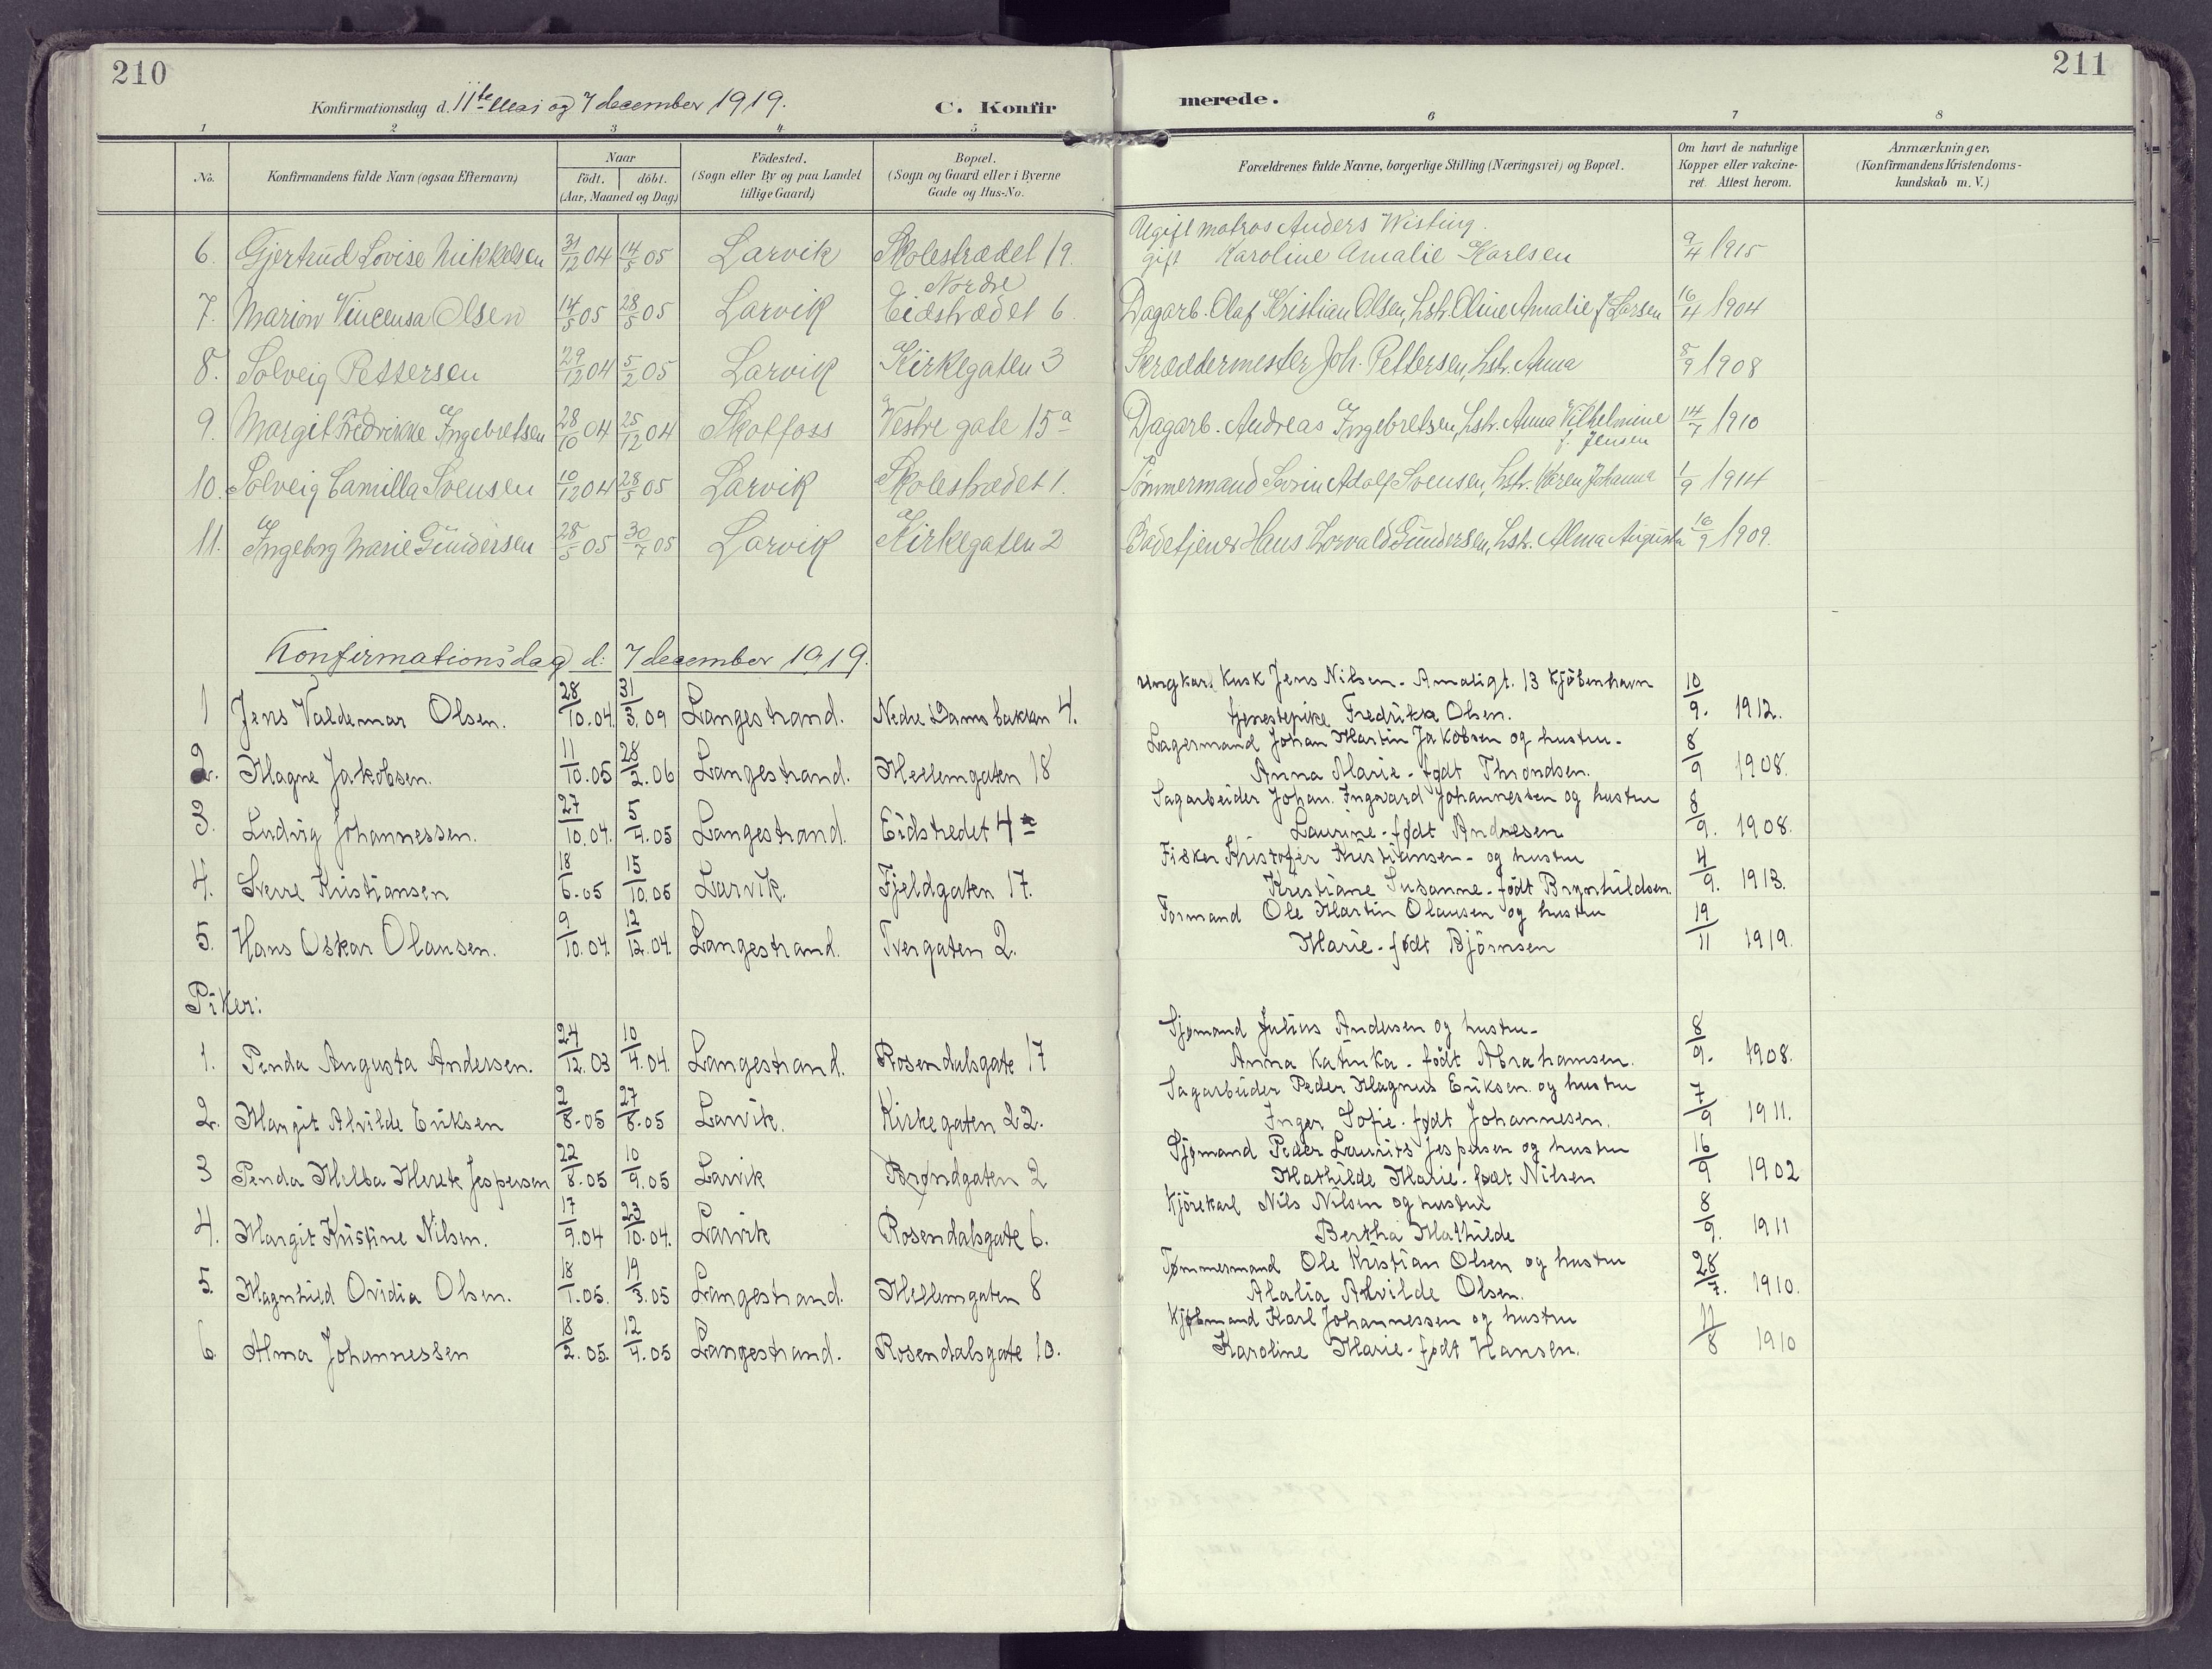 210
211
Konfirmationsdag d. 11te Mai og 7 december 1919.
C. Konfirmerede.
1 2 3 4 5 6 7 8
No.
Konfirmandens fulde Navn (ogsaa Efternavn)
Naar
födt. döbt.
(Aar, Maaned og Dag)
Födested.
(Sogn eller By og paa Landet
tillige Gaard)
Bopæl.
(Sogn og Gaard eller i Byerne
Gade og Hus-No.
Forældrenes fulde Navne, borgerlige Stilling (Næringsvei) og Bopæl.
Om havt de naturlige
Kopper eller vakcine-
ret. Attest herom.
Anmærkninger,
(Konfirmandens Kristendoms-
kundskab m. V.)
Ugift matros Anders Wisting.
6. Gjertrud Lovise Mikkelsen 31/12 04 14/5 05 Larvik Skolestrædet 19. gift Karoline Amalie Karlsen 9/4 1915
Nordre
7. Marion Vincensa Olsen 14/5 05 28/5 05 Larvik Eidstrædet 6. Dagarb. Olaf Kristian Olsen, hstr. Oline Amalie f Larsen 16/4 1904
8. Solveig Pettersen 29/12 04 5/2 05 Larvik Kirkegaten 3 Skræddermester Joh. Pettersen, hstr. Anna 8/9 1908
9. Margit Fredrikke Ingebretsen 28/10 04 25/12 04 Skotfoss Vestre gate 15a Dagarb. Andreas Ingebretsen, hstr. Anna Vilhelmine 14/7 1910
f. Jensen
10. Solveig Camilla Svensen 10/12 04 28/5 05 Larvik Skolestrædet 1. Tømmermand Sørin Adolf Svensen, hstr. Karen Johanna 1/9 1914
11. Ingeborg Marie Gundersen 28/5 05 30/7 05 Larvik Kirkegaten 2 Badetjener Hans Thorvald Gundersen, hstr. Alma Augusta 16/9 1909.
Konfirmationsdag d: 7 december 1919.
Ungkar. Kusk Jens Nilsen - Amaligt. 13 Kjøbenhavn
1 Jens Valdemar Olsen. 28/10.04. 31/3.09 Langestrand. Nedre Damsbakken 4. tjenestepike Fredrikke Olsen. 10/9. 1912.
Lagermand Johan Martin Jakobsen og hustru -
2. Magne Jakobsen. 11/10.05 28/2.06 Langestrand. Mellemgaten 18 Anna Marie - født Throndsen. 8/9 1908.
Sagarbeider Johan Ingvard Johannessen og hustru
3. Ludvig Johannessen. 27/10.04. 5/4.05 Langestrand. Eidstredet 4a Laurine - født Andresen 8/9. 1908.
Fisker Kristofer Kristiansen - og hustru
4. Sverre Kristiansen 18/6.05 15/10.05 Larvik. Fjeldgaten 17. Kristiane Susanne - født Brynhildsen. 4/9. 1913.
Formand Ole Martin Olausen og hustru
5. Hans Oskar Olausen. 9/10.04. 12/12.04. Langestrand. Tvergaten 2. Marie - født Bjørnsen 19/11 1919.
Piker:
Sjømand Julius Andersen og hustru -
1. Penda Augusta Andersen. 24/12.03 10/4.04. Langestrand. Rosendalsgate 17 Anna Katinka - født Abrahamsen. 8/9. 1908.
Sagarbeider Peder Magnus Eriksen og hustru
2. Margit Alvilde Eriksen 2/8.05 27/8.05 Larvik. Kirkegaten 22. Inger Sofie - født Johannesen. 7/9 1911.
Sjømand Peder Laurits Jespersen og hustru
3 Penda Melba Merete Jespersen 22/8.05 10/9.05 Larvik Brøndgaten 2 Mathilde Marie - født Nilsen 16/9 1902
Kjørekarl Nils Nilsen og hustru
4. Margit Kristine Nilsen. 17/9.04 23/10.04. Larvik Rosendalsgate 6. Bertha Mathilde 8/9. 1911
Tømmermand Ole Kristian Olsen og hustru
5. Magnhild Ovidia Olsen. 18/1.05. 19/3.05 Langestrand. Mellemgaten 8 Alalia Alvilde Olsen. 28/7. 1910.
Kjøbmand Karl Johannessen og hustru
6. Alma Johannessen 18/2.05. 12/4.05 Langestrand. Rosendalsgate 10. Karoline Marie - født Hansen. 11/8 1910